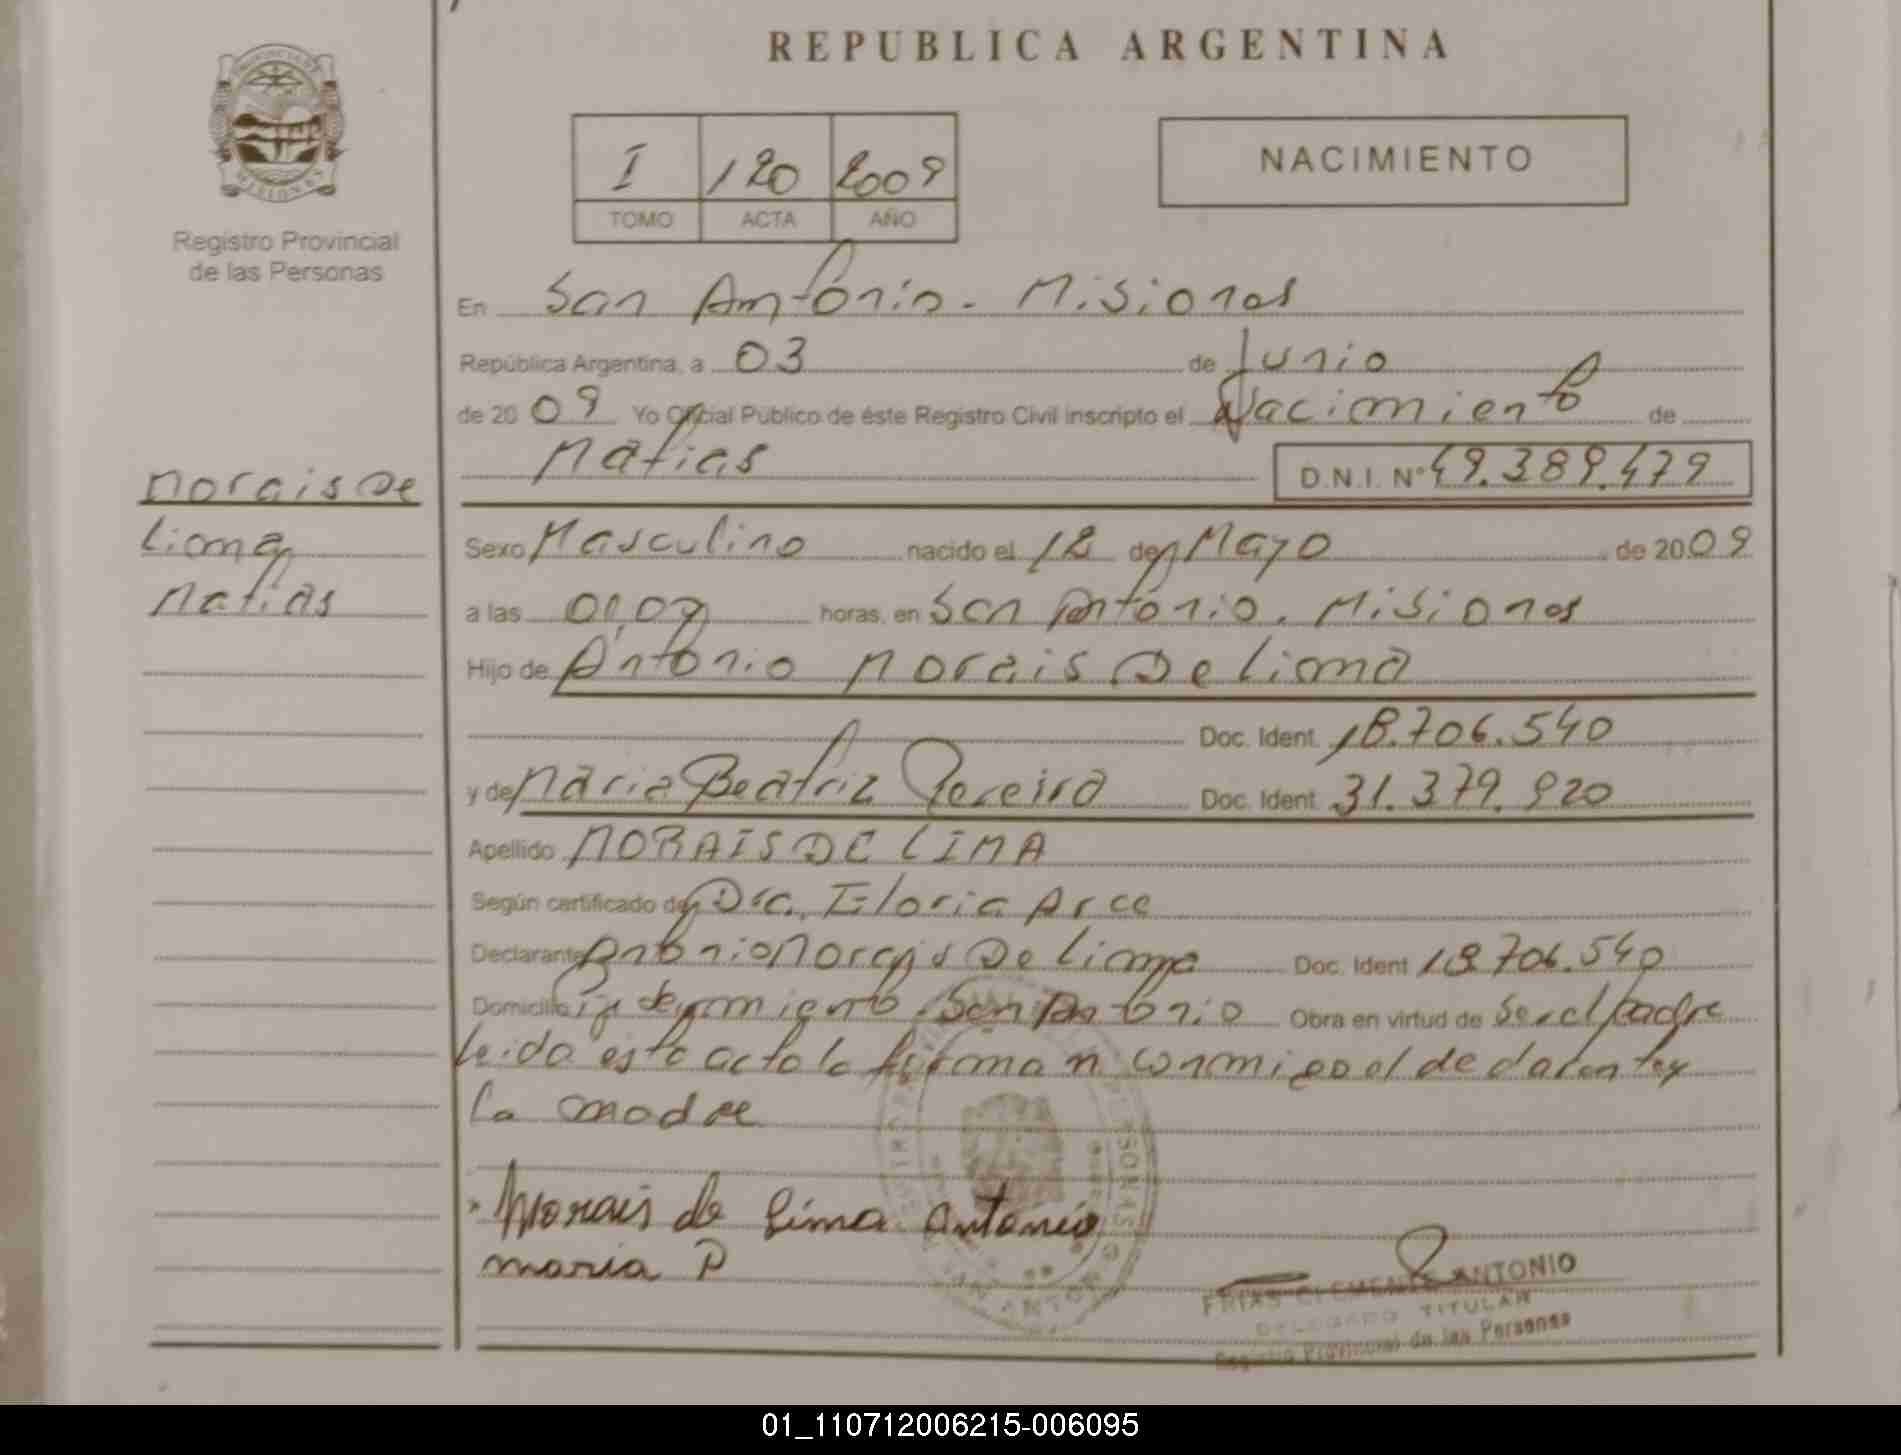 REPUBLICA ARGENTINA
PROVINCIA DE
MISIONES
Registro Provincial
de las Personas
I 120 2009
TOMO ACTA AÑO
NACIMIENTO
En San Antonio. Misiones
República Argentina, a 03 de Junio
de 2009 Yo Oficial Publico de éste Registro Civil inscripto el Nacimiento de
Matias D.N.I. Nº 49.389.479
Morais De
Lima
Matias
Sexo Masculino nacido el 12 de Mayo de 2009
a las horas, en San Antonio. Misiones
Hijo de Antonio Morais De Lima
Doc. Ident. 18.706.540
y de Maria Beatriz Pereira Doc. Ident. 31.379.920
Apellido MORAIS DE LIMA
Según certificado de Dra. Gloria Arce
Declarante Antonio Morais De Lima Doc. Ident 18.706.540
Domicilio San Antonio Obra en virtud de Ser el padre
Leida esta acta la firman conmigo el declarante y
La madre
Morais de Lima Antonio
maria P
FRIAS CLEMENTE ANTONIO
DELEGADO TITULAR
Registro Provincial de las Personas
01_110712006215-006095